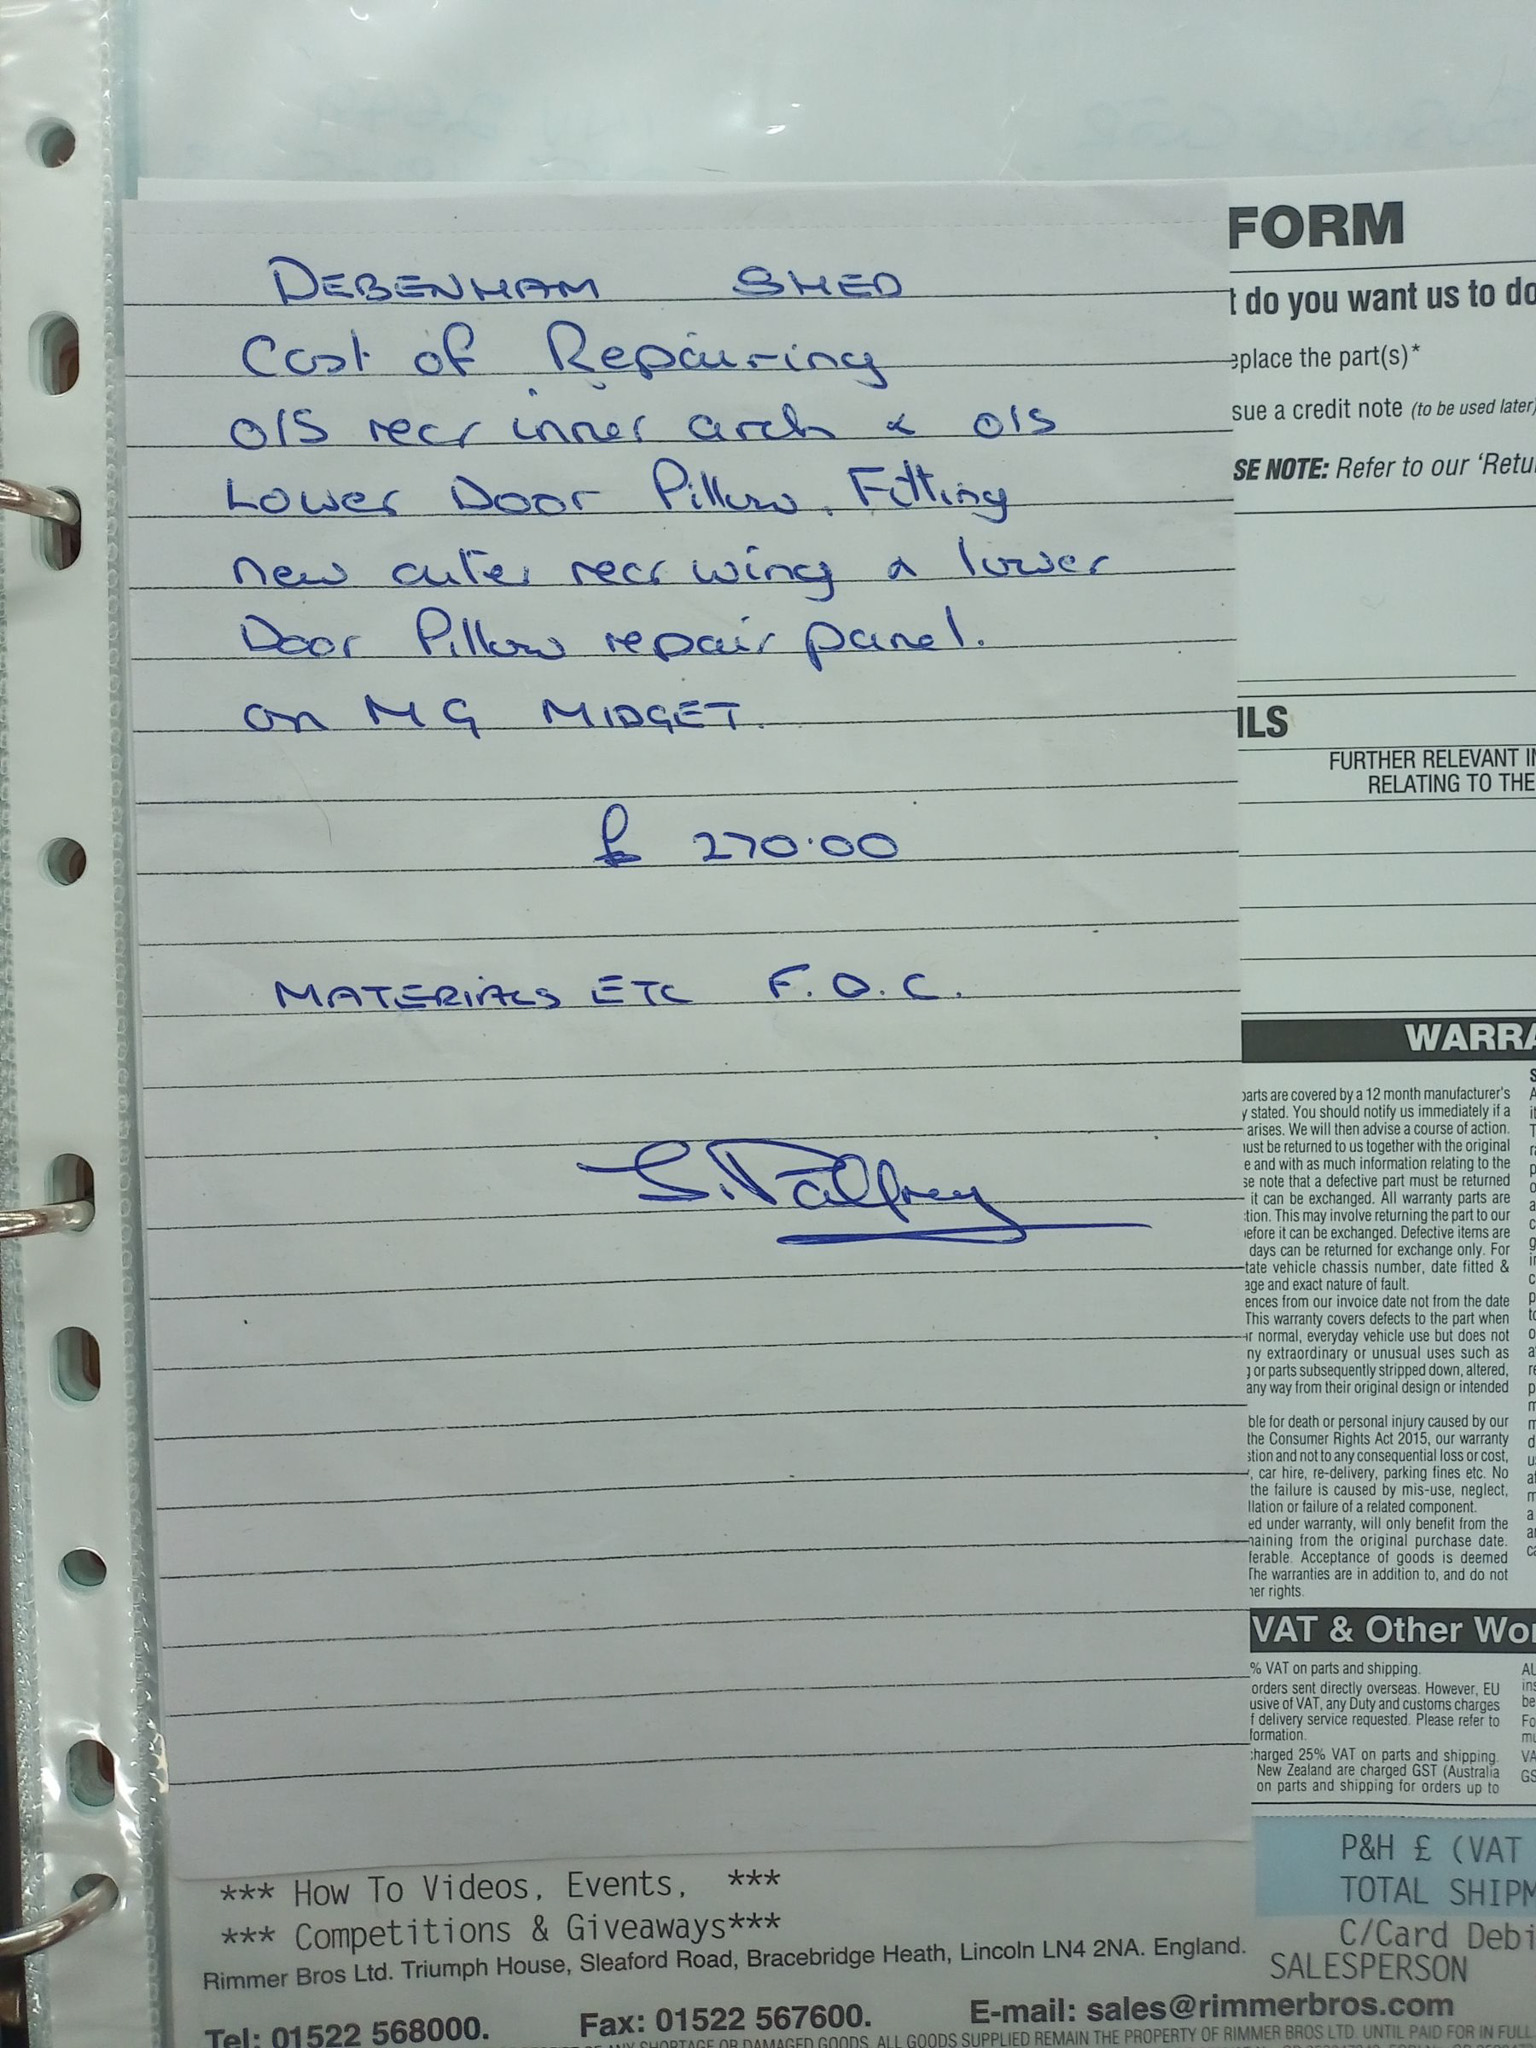 DEBENHAM SHED
Cost of Repairing
O/S rear inner arch & O/S
Lower Door Pillow. Fitting
new outer rear wing & lower
Door Pillow repair panel.
on MG MIDGET.
£ 270.00
MATERIALS ETC F.O.C.
S. Palfrey
FORM
t do you want us to do
eplace the part(s)*
sue a credit note (to be used later)
SE NOTE: Refer to our ‘Retu
ILS
FURTHER RELEVANT IN
RELATING TO THE
WARRA
parts are covered by a 12 month manufacturer's
y stated. You should notify us immediately if a
arises. We will then advise a course of action.
ust be returned to us together with the original
e and with as much information relating to the
se note that a defective part must be returned
it can be exchanged. All warranty parts are
tion. This may involve returning the part to our
efore it can be exchanged. Defective items are
days can be returned for exchange only. For
tate vehicle chassis number, date fitted &
age and exact nature of fault.
ences from our invoice date not from the date
This warranty covers defects to the part when
r normal, everyday vehicle use but does not
ny extraordinary or unusual uses such as
g or parts subsequently stripped down, altered,
any way from their original design or intended
ble for death or personal injury caused by our
the Consumer Rights Act 2015, our warranty
stion and not to any consequential loss or cost,
, car hire, re-delivery, parking fines etc. No
the failure is caused by mis-use, neglect,
llation or failure of a related component.
ed under warranty, will only benefit from the
naining from the original purchase date.
ferable. Acceptance of goods is deemed
The warranties are in addition to, and do not
her rights.
VAT & Other Wor
% VAT on parts and shipping.
orders sent directly overseas. However, EU
usive of VAT, any Duty and customs charges
f delivery service requested. Please refer to
formation.
charged 25% VAT on parts and shipping.
New Zealand are charged GST (Australia
on parts and shipping for orders up to
P&H £ (VAT
TOTAL SHIPM
C/Card Debi
SALESPERSON
*** How To Videos, Events, ***
*** Competitions & Giveaways***
Rimmer Bros Ltd. Triumph House, Sleaford Road, Bracebridge Heath, Lincoln LN4 2NA. England.
Tel: 01522 568000. Fax: 01522 567600. E-mail: sales@rimmerbros.com
ANY SHORTAGE OR DAMAGED GOODS. ALL GOODS SUPPLIED REMAIN THE PROPERTY OF RIMMER BROS LTD. UNTIL PAID FOR IN FULL.